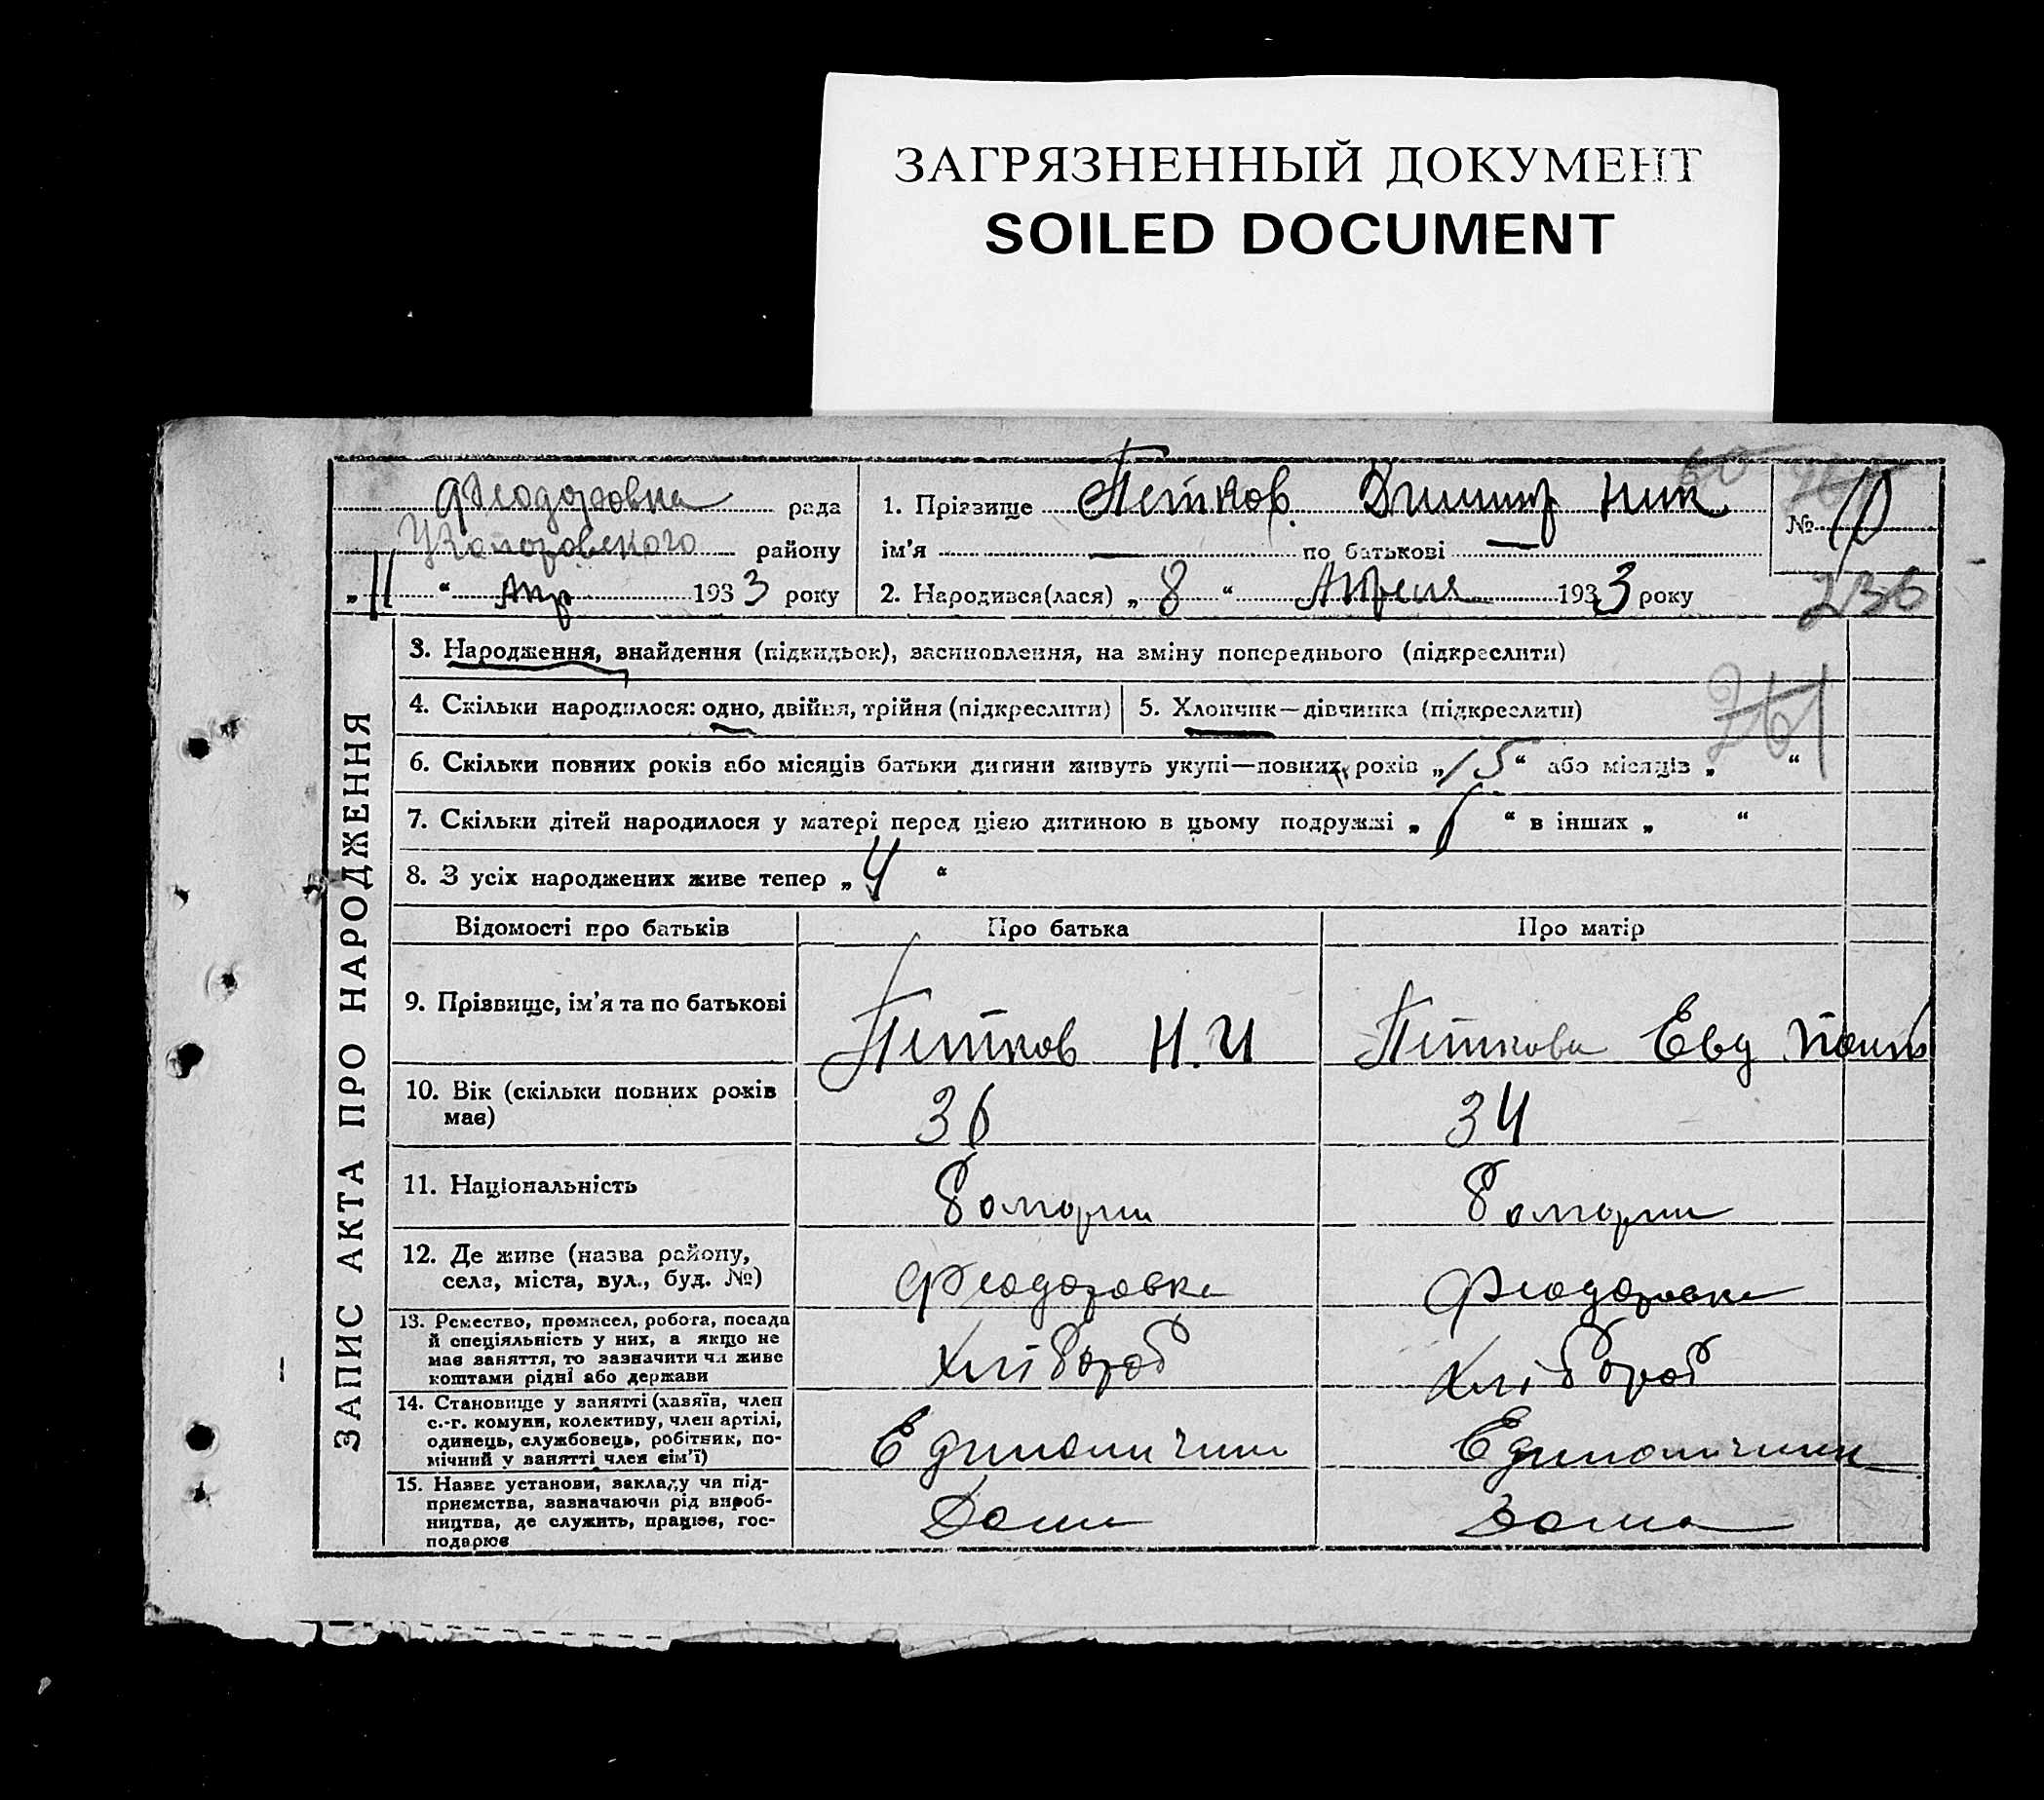 ЗАГРЯЗНЕННЫЙ ДОКУМЕНТ
SOILED DOCUMENT
Феодоровка рада
району
„ 11 “ Апр 1933 року
1. Прізвище Петков Димитр Ник
ім'я — по батькові —
2. Народився(лася) „ 8 “ Апреля 1933 року
60
№ 10
236
ЗАПИС АКТА ПРО НАРОДЖЕННЯ
3. Народження, знайдення (підкидьок), засиновлення, на зміну попереднього (підкреслити)
4. Скільки народилося: одно, двійня, трійня (підкреслити)
5. Хлопчик—дівчинка (підкреслити)
261
6. Скільки повних років або місяців батьки дитини живуть укупі—повних років „ 15 “ або місяців „ “
7. Скільки дітей народилося у матері перед цією дитиною в цьому подружжі „ 6 “ в інших „ “
8. З усіх народжених живе тепер „ 4 “
Відомості про батьків Про батька Про матір
9. Прізвище, ім'я та по батькові Петков Н. И Петкова Евд
10. Вік (скільки повних років має) 36 34
11. Національність Болгарин Болгарин
12. Де живе (назва району, села, міста, вул., буд. №) Феодоровка Феодоровка
13. Ремество, промисел, робота, посада й спеціяльність у них, а якщо не має заняття, то зазначити чи живе коштами рідні або держави Хлібороб Хлібороб
14. Становище у занятті (хазяїн, член с.-г. комуни, колективу, член артілі, одинець, службовець, робітник, помічний у занятті член сім'ї) Единоличник Единоличник
15. Назва установи, закладу чи підприємства, зазначаючи рід виробництва, де служить, працює, господарює Дома Дома